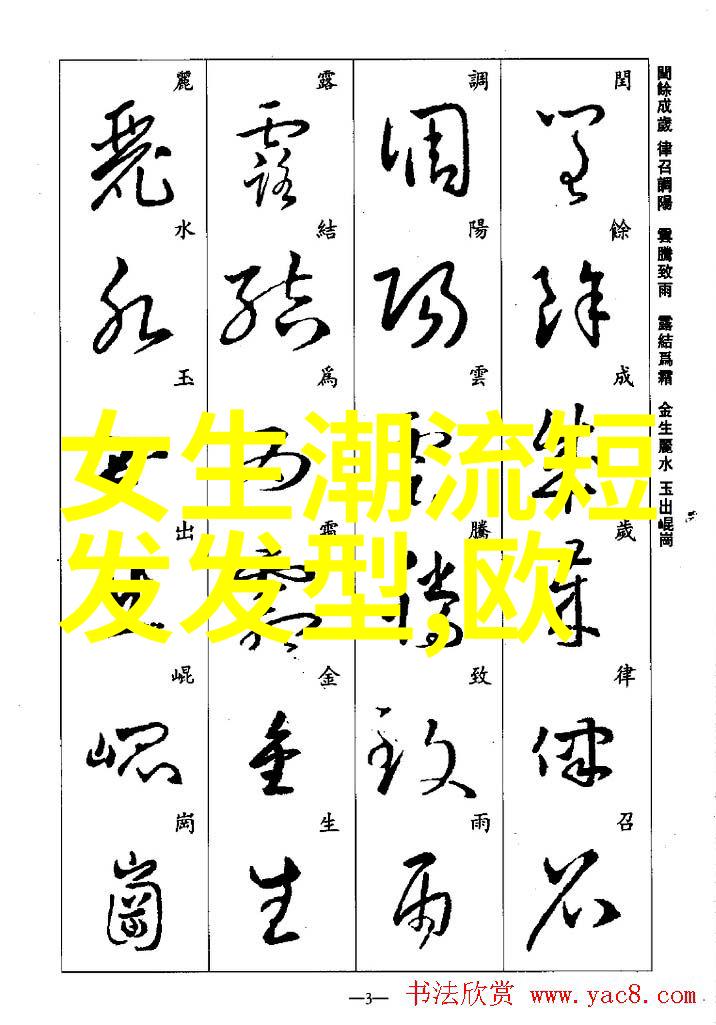 閏餘成歲 律召調陽 雲騰致雨 露結爲霜 金生麗水 玉出崐崗
閏餘成歲律召
調陽雲騰致雨
露結爲霜金生
麗水玉出崐崗
女生潮流短
发发型,欧
—3—
书法欣赏 www.yac8.com